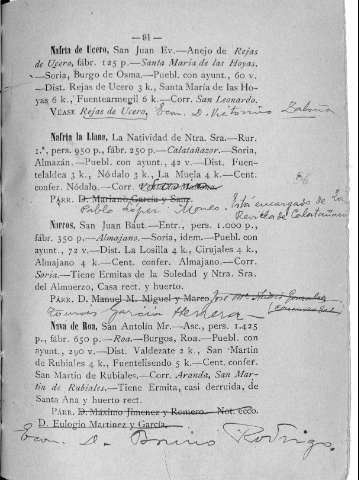 — 81 —
Nafría de Ucero, San Juan Ev.—Anejo de Rejas
de Ucero, fábr. 125 p.—Santa María de las Hoyas.
—Soria, Burgo de Osma.—Puebl. con ayunt., 60 v.
—Dist. Rejas de Ucero 3 k., Santa María de las Ho-
yas 6 k., Fuentearmegil 6 k.—Corr. San Leonardo.
VÉASE Rejas de Ucero, Ecm. D. Victorino
Nafría la Llana, La Natividad de Ntra. Sra.—Rur.
1.ª, pers. 950 p., fábr. 250 p.—Calatañazor.—Soria,
Almazán.—Puebl. con ayunt., 42 v.—Dist. Fuen-
telaldea 3 k., Nódalo 3 k., La Muela 4 k.—Cent.
confer. Nódalo.—Corr.
PÁRR. D. Mariano García y Sanz.
Pablo López
Está encargado de
Rentilla de Calatañazor
Narros, San Juan Baut.—Entr., pers. 1.000 p.,
fábr. 350 p.—Almajano.—Soria, idem.—Puebl. con
ayunt., 72 v.—Dist. La Losilla 4 k., Cirujales 4 k.,
Almajano 4 k.—Cent. confer. Almajano.—Corr.
Soria.—Tiene Ermitas de la Soledad y Ntra. Sra.
del Almuerzo, Casa rect. y huerto.
PÁRR. D. Manuel M. Miguel y Marco.
Tomas García Herrera
Nava de Roa, San Antolín Mr.—Asc., pers. 1.425
p., fábr. 650 p.—Roa.—Burgos, Roa.—Puebl. con
ayunt., 290 v.—Dist. Valdezate 2 k., San Martín
de Rubiales 4 k., Fuentelisendo 5 k.—Cent. confer.
San Martín de Rubiales.—Corr. Aranda, San Mar-
tín de Rubiales.—Tiene Ermita, casi derruida, de
Santa Ana y huerto rect.
PÁRR. D. Máximo Jimenez y Romero.—Not. ecco.
D. Eulogio Martínez y García.
Ecm. D. Bruno Rodrigo.